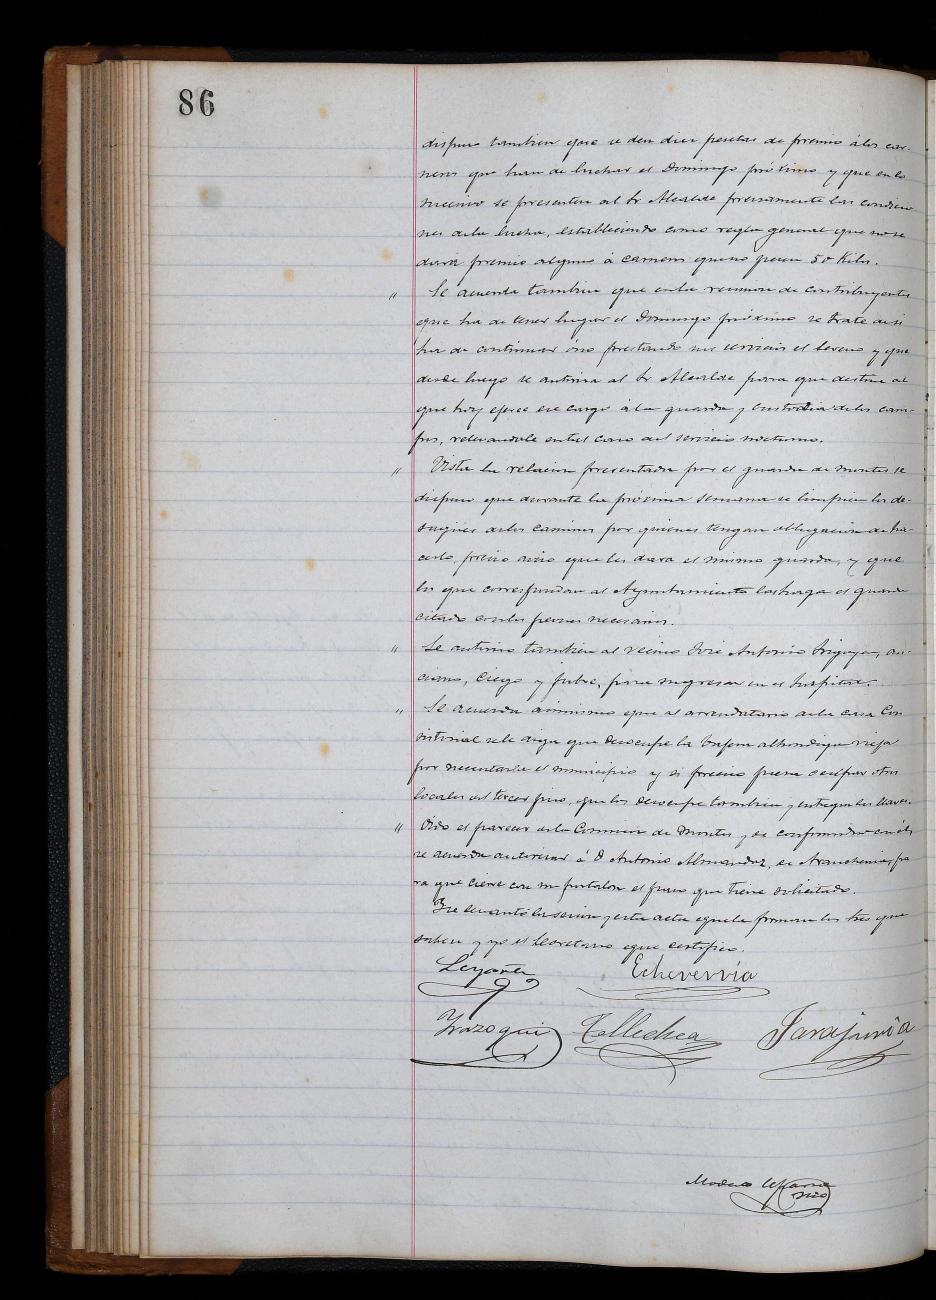 86
dispuso tambien que se den diez pesetas de premio á los car-
neros que han de luchar el Domingo próximo y que en lo
sucesivo se presenten al Sr Alcalde previamente las condicio
nes de la lucha, estableciendo como regla general que no se
dará premio alguno á carneros que no pesen 50 Kilos.
" Se acuerda tambien que en la reunion de contribuyentes
que ha de tener lugar el Domingo próximo se trate de si
ha de continuar ó no prestando sus servicios el sereno y que
desde luego se autoriza al Sr Alcalde para que destine al
que hoy ejerce ese cargo á la guarda y custodia de los cam-
pos, relevandole en tal caso del servicio nocturno.
" Vista la relacion presentada por el guarda de montes se
dispuso que durante la próxima semana se limpien los de-
sagües de los caminos por quienes tengan obligacion de ha-
cerlo, previo aviso que les dará el mismo guarda, y que
los que correspondan al Ayuntamiento los haga el guarda
citado con los peones necesarios.
" Se autorizó tambien al vecino José Antonio Irigoyen, an-
ciano, ciego y pobre, para ingresar en el hospital.
" Se acuerda asimismo que al arrendatario de la casa Con
sistorial se le diga que desocupe la alhondiga vieja
por necesitarla el municipio y si preciso fuera ocupar otros
locales del tercer piso, que los desocupe tambien y entregue las llaves.
" Oido el parecer de la Comision de Montes y de conformidad con él
se acuerda autorizar á D Antonio Almandoz, de Aranchenia, pa
ra que cierre con un portalon el paso que tiene solicitado.
Y se levantó la sesion y esta acta que la firman los tres que
saben y yo el Secretario que certifico.
Loyarte Echeverría
Yrazoqui Tellechea Sarajuria
Modesto
Srio